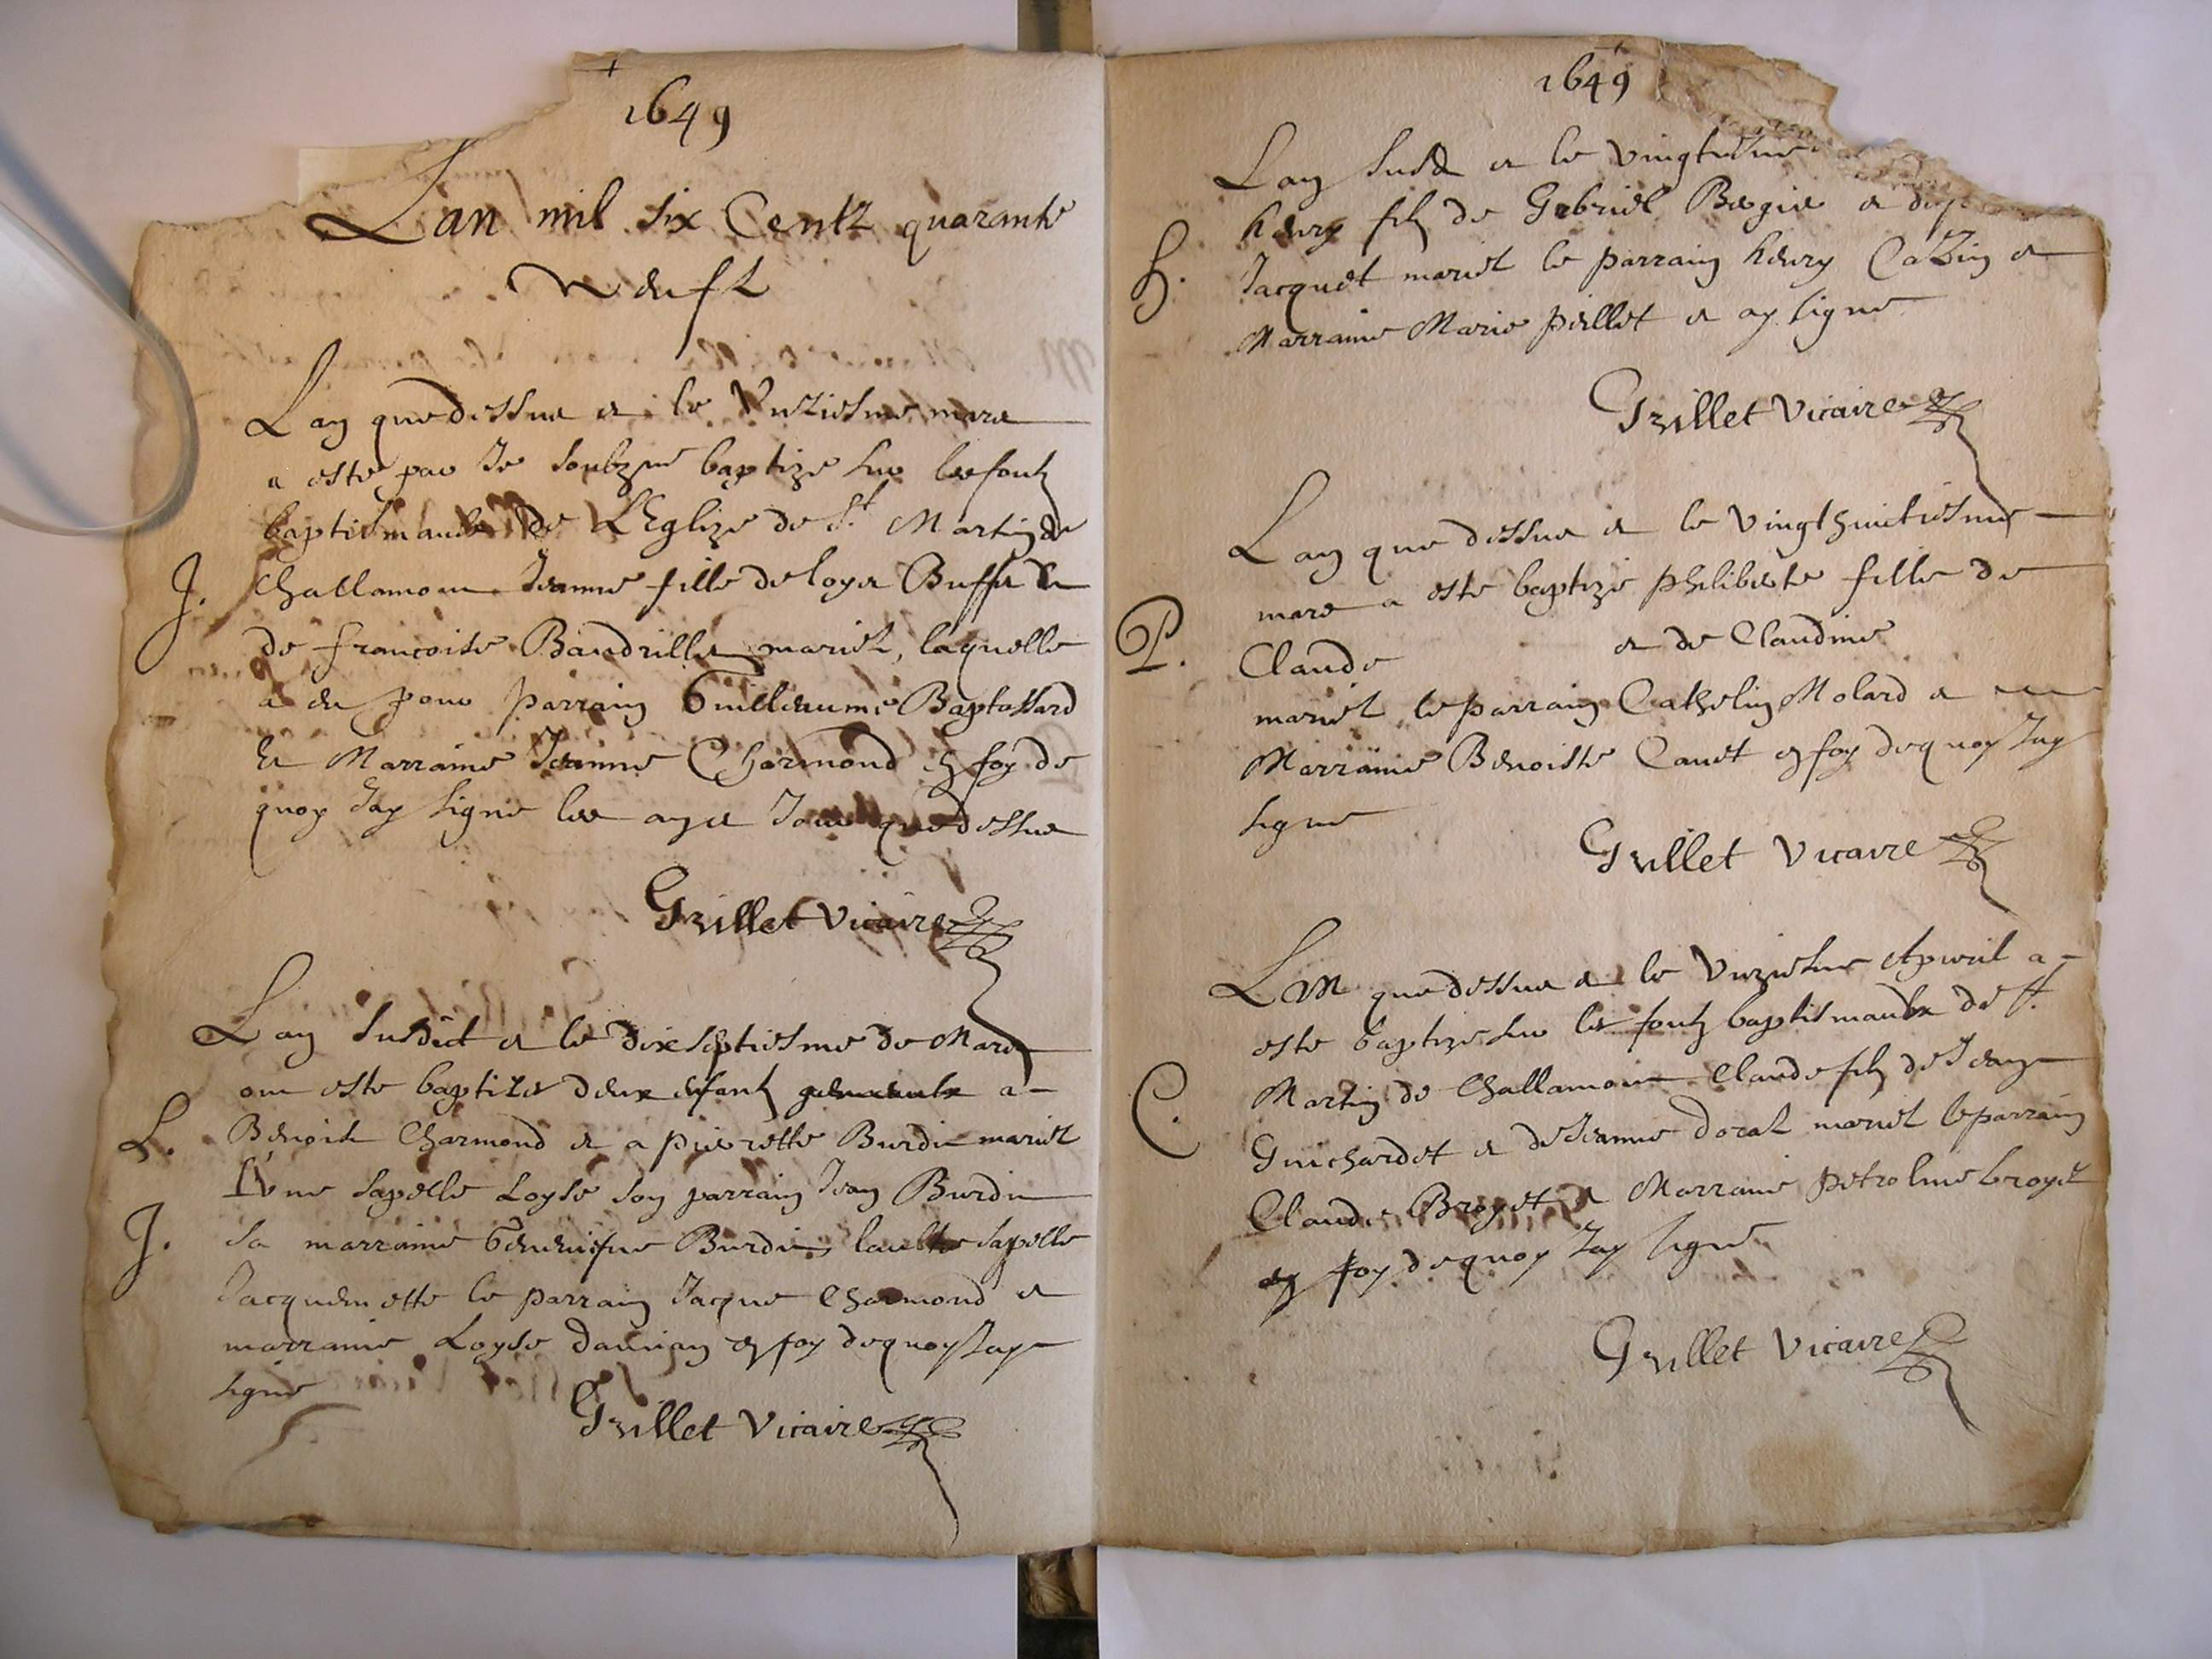 1649
Lan mil six Centz quarante
Neufz
Lan que dessus et le Unziesme mars
a este par Je soubzne baptize sur les fontz
baptismaulx de L'Eglize de St Martin de
J. Challamon Jeanne fille de loys Buffet et
de francoise Baudrillet mariez, laquelle
a eu pour parrain Guilleaume Baptossard
Et Marraine Jeanne Charmond en foy de
quoy Jay signe les an et Jour que dessus
Grillet Vicaire
Lan susdict et le dixseptiesme de Mars
ont este baptizes deux enfantz a
L. Benoist Charmond et a pierrette Burdin mariez
L'une sapelle Loyse son parrain Jean Burdin
J. sa marraine Geneuiefue Burdin, laultre sapelle
Jacquemette le parrain Jacque Charmond et
marraine Loyse en foy dequoy Jay
signe
Grillet Vicaire
1649
Lan susd et le vingtiesme
henry filz de Gabriel et
h. Jacquet mariez le parrain henry Cazin et
Marraine Marie peillet et ay signe
Grillet Vicaire
Lan que dessus et le vingthuictiesme
mars a este baptizé philiberte fille de
P. Claude et de Claudine
mariez le parrain Cathelin Molard et
Marraine Benoiste Canet en foy dequoy Jay
signe
Grillet Vicaire
Lan que dessus et le Unziesme Apuril a
este baptize sur les fontz baptismaulx de St
C. Martin de Challamon Claude filz de Jean
Guichardet et de Jeanne dorat mariez le parrain
Claude Broyet et Marraine petroline broyet
en foy dequoy Jay signe
Grillet Vicaire